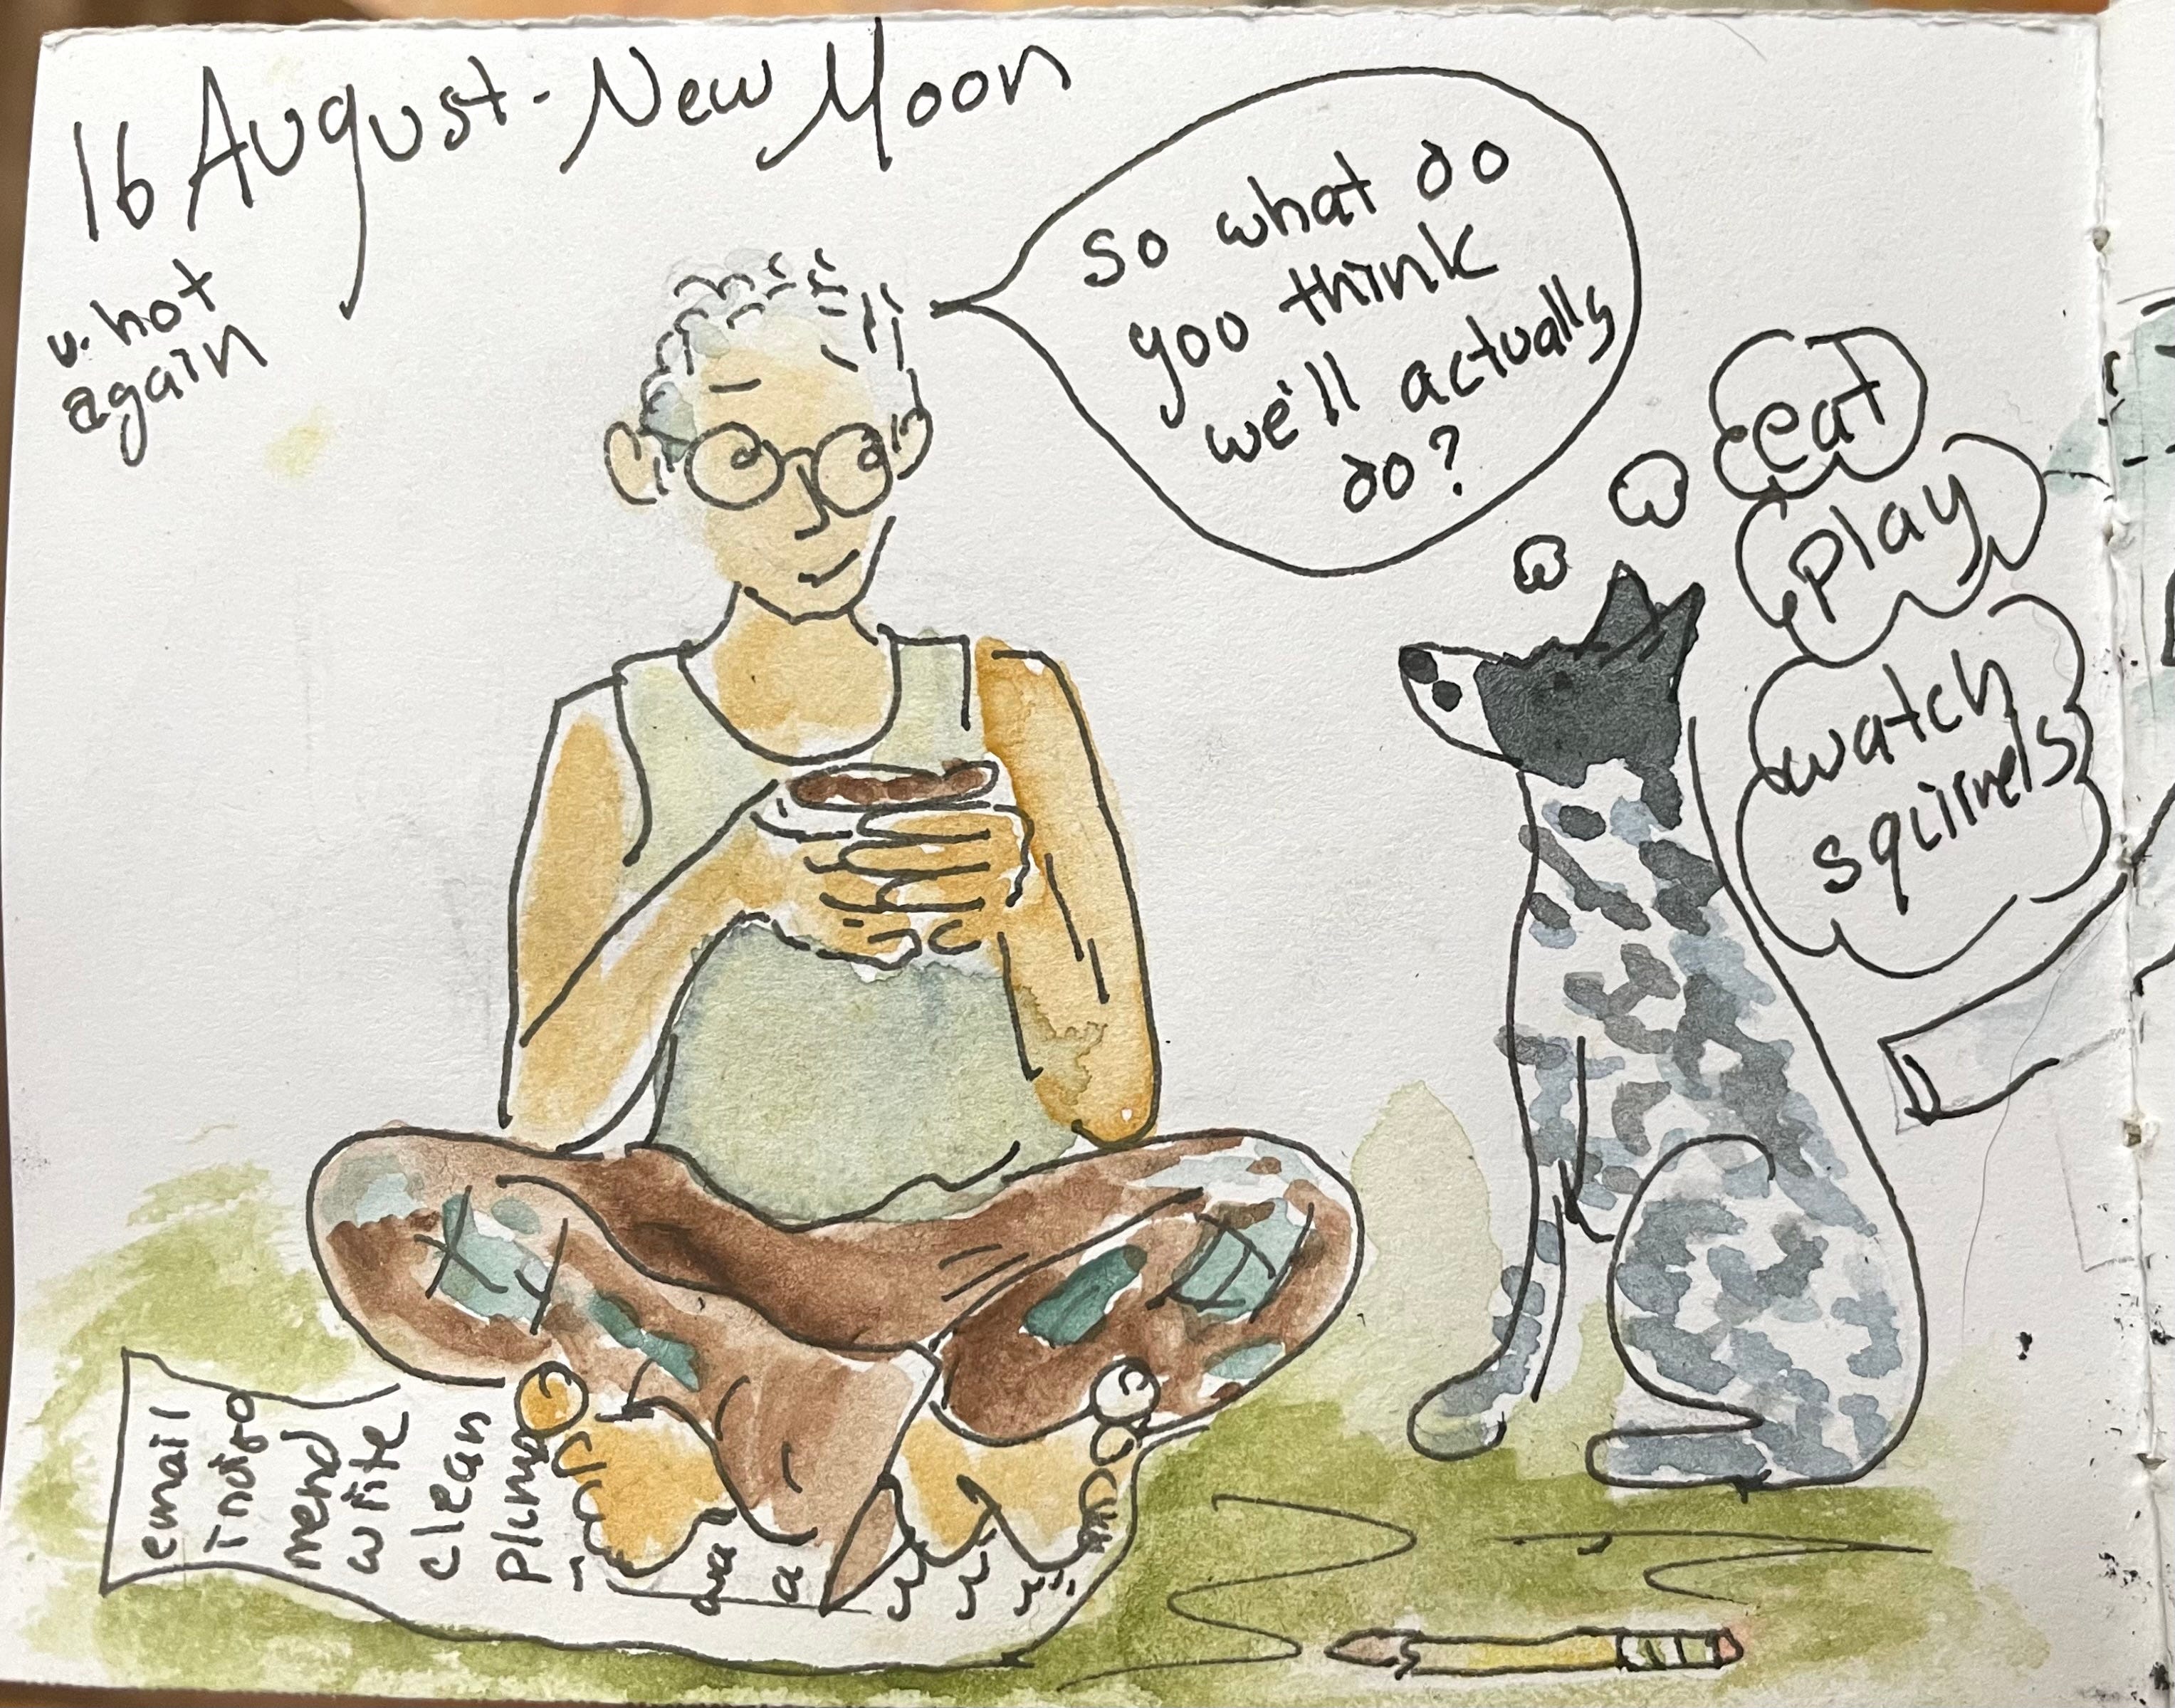 16 August - New Moon
v. hot
again
So what do
you think
we'll actually
do?
eat
play
watch
squirrels
email
indigo
mend
write
clean
plums